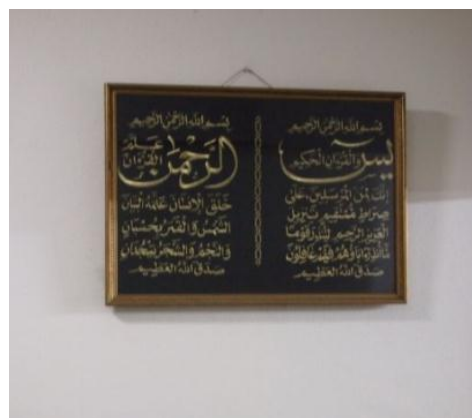 بسم الله الرحمن الرحيم
يس
والقرآن الحكيم
إنك لمن المرسلين على
صراط مستقيم تنزيل
العزيز الرحيم لتنذر قوما
ما أنذر آباؤهم فهم غافلون
صدق الله العظيم
بسم الله الرحمن الرحيم
الرحمن
علم
القرآن
خلق الإنسان علمه البيان
الشمس والقمر بحسبان
والنجم والشجر يسجدان
صدق الله العظيم